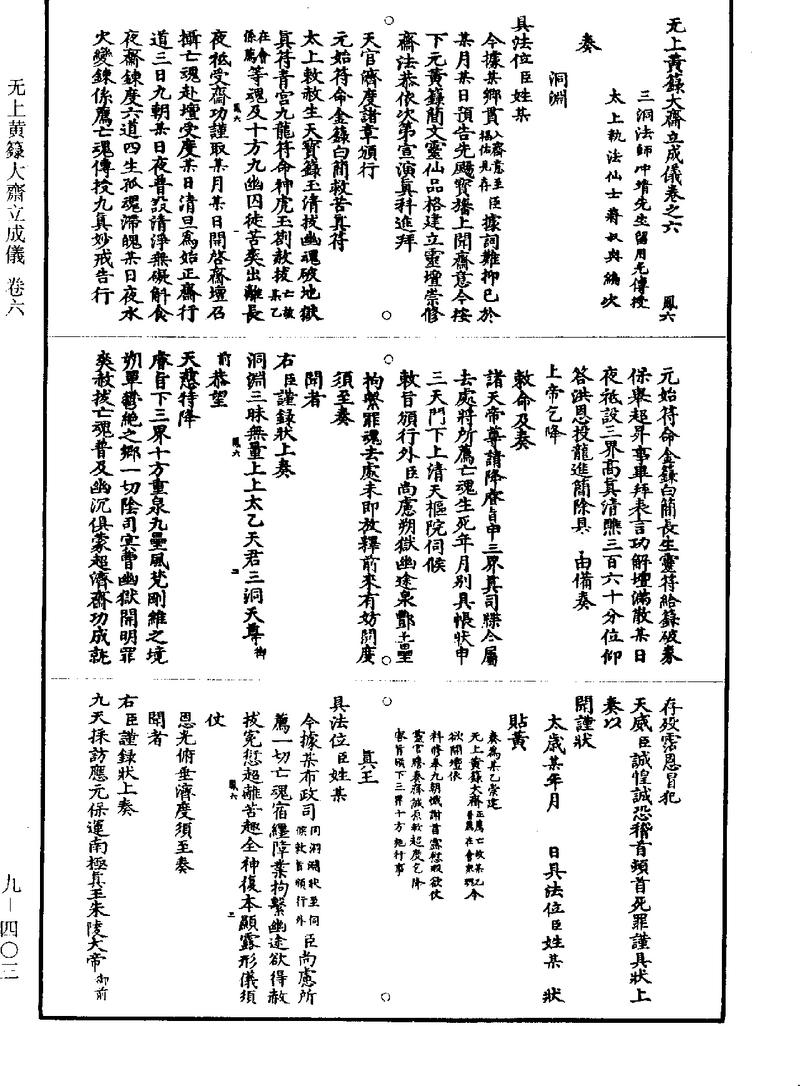 无上黃籙大齋立成儀 卷六
九—四〇三
无上黃籙大齋立成儀卷之六 鳳六
三洞法師冲靖先生留用光傳授
太上執法仙士蔣叔輿編次
奏
洞淵
具法位臣姓某
今據某鄉貫入齋意至描佑見存臣據詞難抑已於
某月某日預告先颺寶旛上聞齋意今按
下元黃籙簡文靈仙品格建立靈壇崇修
齋法恭依次第宣演真科進拜
天官濟度諸章頒行
元始符命金籙白簡救苦真符
太上敕赦生天寶籙玉清拔幽魂破地獄
真符青宮九龍符命神虎玉劄赦拔亡故某乙
在會係薦等魂及十方九幽囚徒苦爽出離長
夜祗受齋功謹取某月某日開啓齋壇召
攝亡魂赴壇受度某日清旦為始正齋行
道三日九朝某日夜普設清淨無礙斛食
夜齋鍊度六道四生孤魂滯魄某日夜水
火變鍊係薦亡魂傳授九真妙戒告行
元始符命金籙白簡長生靈符給籙破券
保舉超昇事畢拜表言功解壇滿散某日
夜祗設三界高真清醮三百六十分位仰
答洪恩投龍進簡除具由備奏
上帝乞降
敕命及奏
諸天帝尊請降睿旨申三界真司牒合屬
去處將所薦亡魂生死年月别具帳狀申
三天門下上清天樞院伺候
敕旨頒行外臣尚慮朔獄幽途泉酆土壘
拘繫罪魂去處未即放釋前來有妨開度
須至奏
聞者
右臣謹錄狀上奏
洞淵三昧無量上上太乙天君三洞天尊御
前恭望
天慈特降
睿旨下三界十方重泉九壘風梵剛維之境
朔單鬱絶之鄉一切陰司冥曹幽獄開明罪
爽赦拔亡魂普及幽沉俱蒙超濟齋功成就
存歿霑恩冒犯
天威臣誠惶誠恐稽首頓首死罪謹具狀上
奏以
聞謹狀
太歲某年月 日具法位臣姓某 狀
貼黃
奏為某乙崇建
无上黃籙大齋正薦亡故某乙普薦在會衆魂今
欲開壇依
科修奉九朝懺謝首露愆瑕欲伏
靈官膺奏齋誠原赦超度乞降
睿旨頒下三界十方施行事
真王
具法位臣姓某
今據某布政司同洞淵狀至伺候敕旨頒行外臣尚慮所
薦一切亡魂宿纏障業拘繫幽途欲得赦
拔寃愆超離苦趣全神復本顯露形儀須
仗
恩光俯垂濟度須至奏
聞者
右臣謹錄狀上奏
九天採訪應元保運南極真王朱陵大帝御前